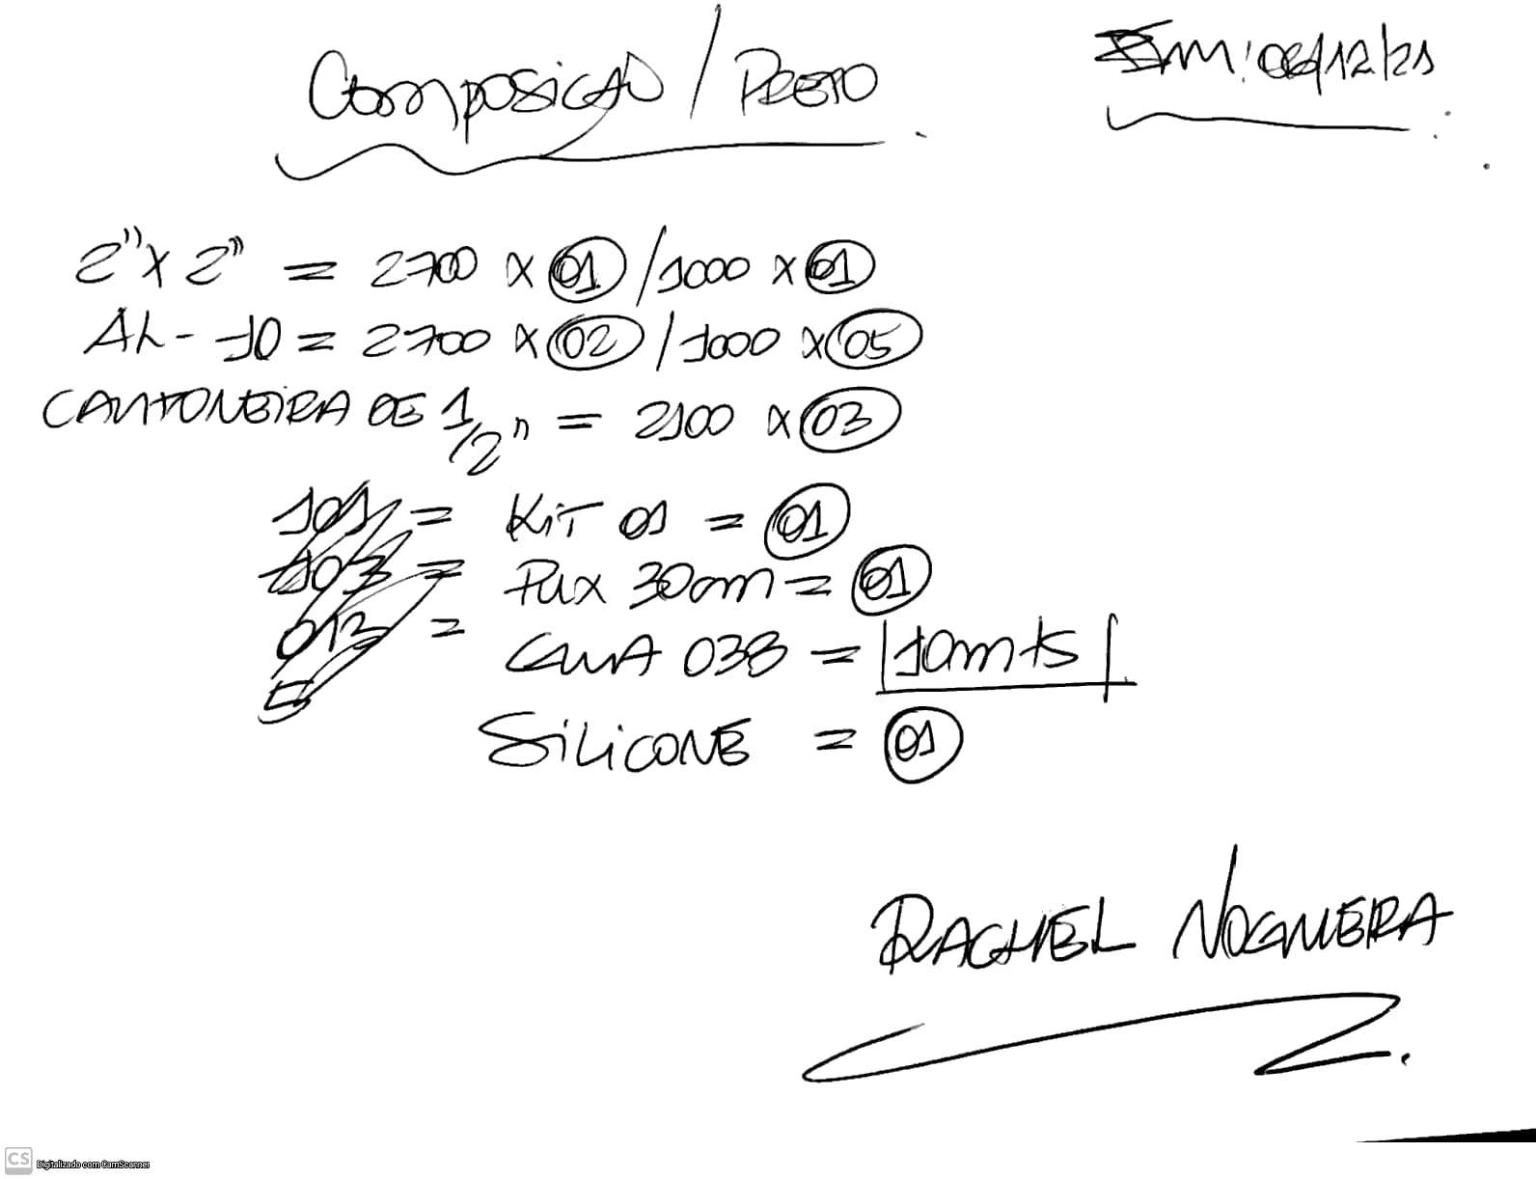 Composição / PRETO
Em: 06/12/21
2" x 2" = 2700 x 01 / 1000 x 01
AL - 10 = 2700 x 02 / 1000 x 05
CANTONEIRA DE 1/2" = 2100 x 03
101 = KiT 01 = 01
103 = PUX 30cm = 01
013 = 038 = 10mts
5
SiLiCONE = 01
RACHEL NOGUEIRA
CS Digitalizado com CamScanner